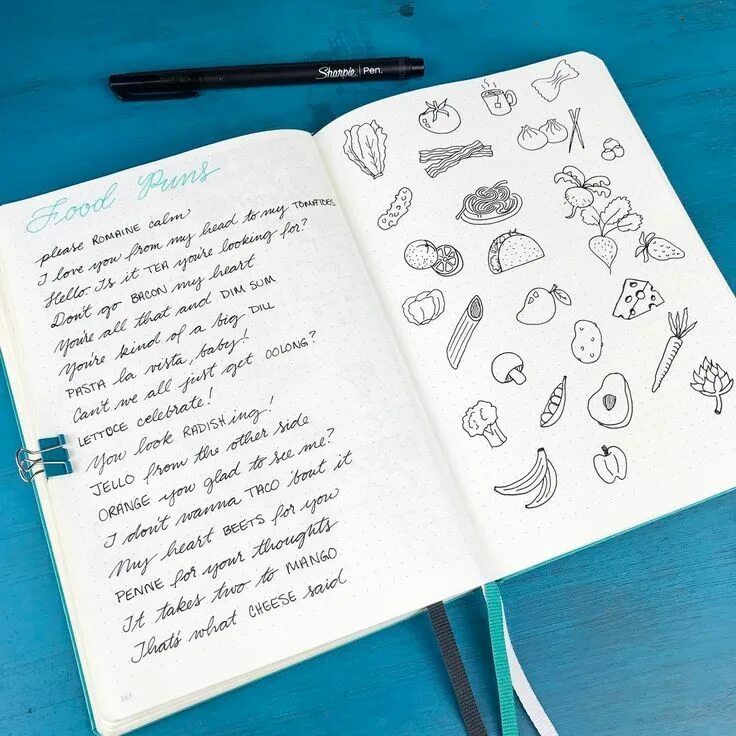 Sharpie. | Pen.
Food Puns
please ROMAINE calm
I love you from my head to my TOMATOES
Hello. Is it TEA you're looking for?
Don't go BACON my heart
You're all that and DIM SUM
You're kind of a big DILL
PASTA la vista, baby!
Can't we all just get OOLONG?
LETTUCE celebrate!
You look RADISHing!
JELLO from the other side
ORANGE you glad to see me?
I don't wanna TACO 'bout it
My heart BEETS for you
PENNE for your thoughts
It takes two to MANGO
That's what CHEESE said
163